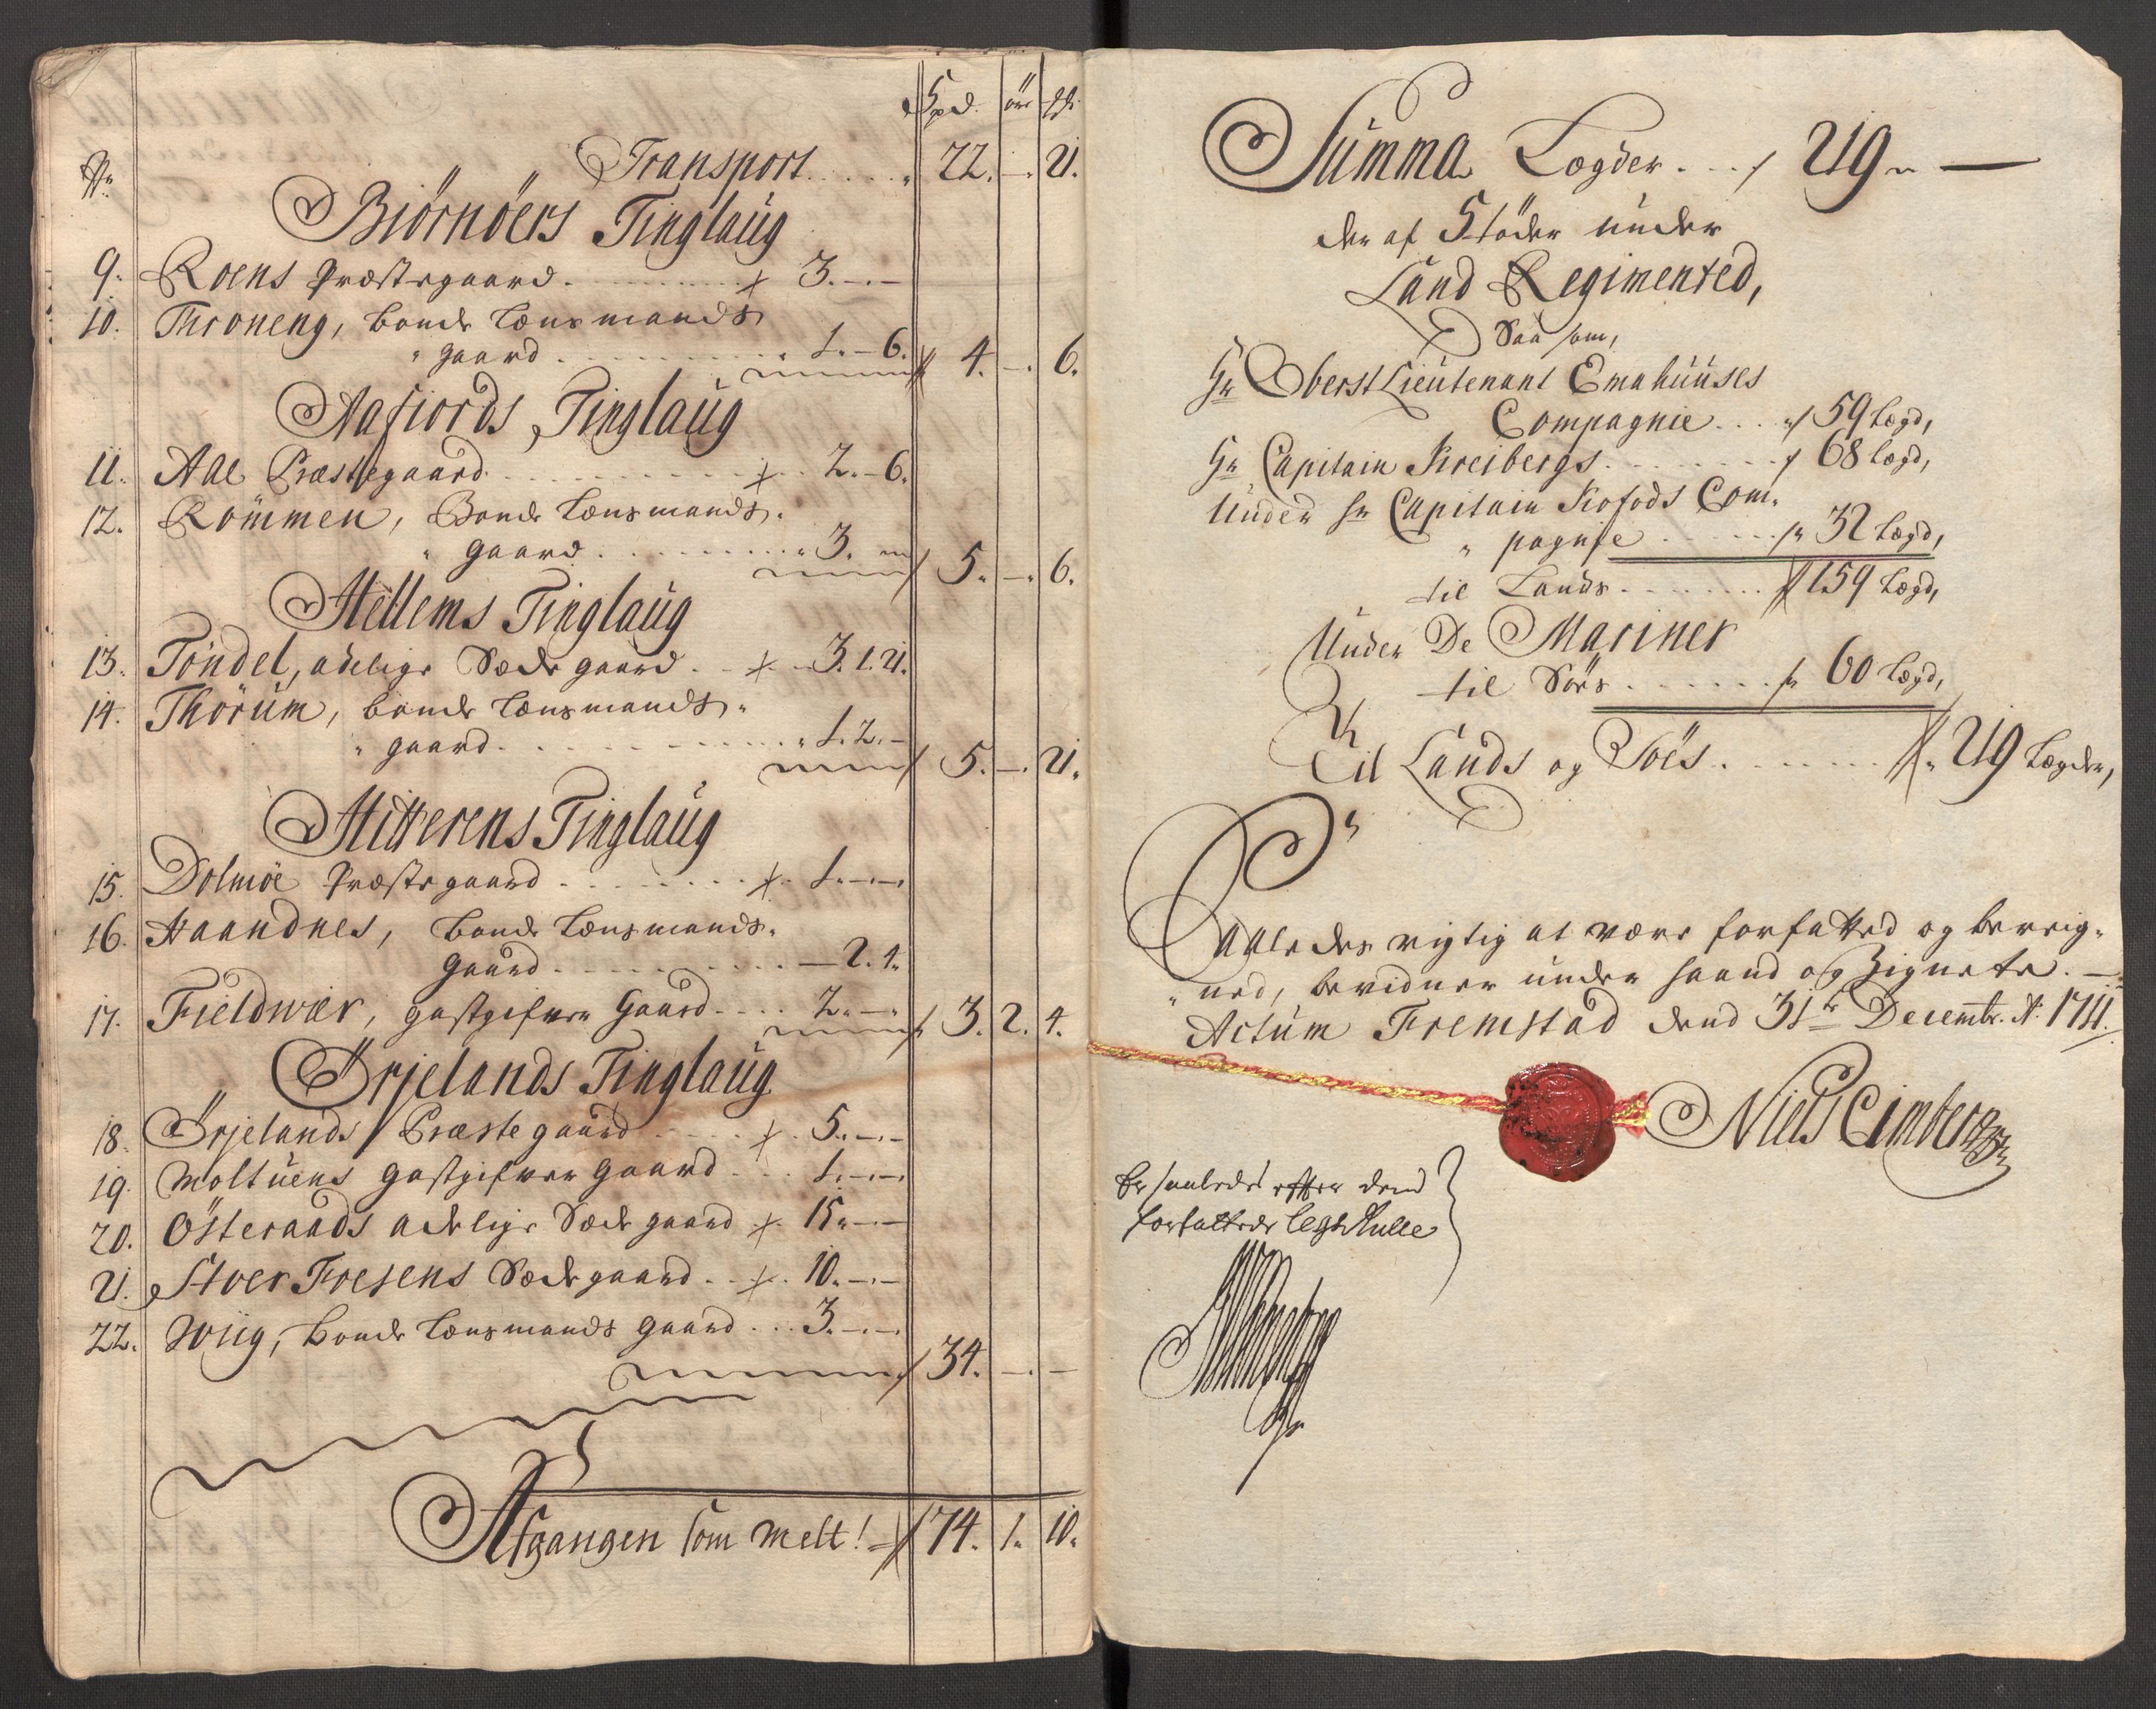 Spd. ōre
No Transport. . . . . 22. -. 21.
Biörnöers Tinglaug
9. Roens Præstegaard. . . . . 3. -. -
10. Throneng, bonde Lænsmands
gaard . . . . 1. - 6. 4. -. 6.
Aafiords Tinglaug
11. Aae Præstegaard. . . . . 2. - 6.
12. Römmen, Bonde Lænsmands.
gaard. . . . . 3. 5. -. 6.
Stellems Tinglaug
13. Töndel, adelige Sæde gaard. 3. 1. 21.
14. Thörüm, bonde Lænsmands.
gaard. . . . . 1. 2. - 5. -. 21.
Hitterens Tinglaug
15. Dolmöe Præste gaard . . . . 1. -. -
16. Haandnes, bonde Lænsmands.
gaard. . . . . - 2. 4.
17. Fieldwær, gastgifver Gaard. . . . 2. -. 3. 2. 4.
Örjelands Tinglaug
18. Örjelands Præste gaard . . . . 5. -. -
19. Moltuens gastgifver gaard. . . 1. -. -
20. Österaads adelige Sæde gaard 15. -. -
21. Stoer Foesens Sæde gaard. . . 10. -. -
22. Wiig, bonde Lænsmands gaard. . . 3. -. -
34. -. -
Afgangen som melt! 74. 1. 10.
Summa Lægder. . . 219. -
der af Stöder under
Land Regimented,
Saa som,
Hr Oberst Lieutenant Emahuuses
Compagnie. . . 59 Lægd,
Hr Capitain Kreibergs. . . . . 68 Lægd,
Under Hr Capitain Kofods Com.
pagnie . . . . 32 Lægd,
til Lands. . . . . 159 Lægd,
Under De Mariner
til Söes. . . . . 60 Lægd,
Til Lands og Söes. . . . . 219 Lægder,
Saaledes rigtig at være forfatted og bereig.
ned, bevidner under haand og Zignete. -
Actum Fremstad dend 31te Decembr. Ao. 1711.
Niels Cimber
Er saaledes efter dend
forfattede Legd Rulle